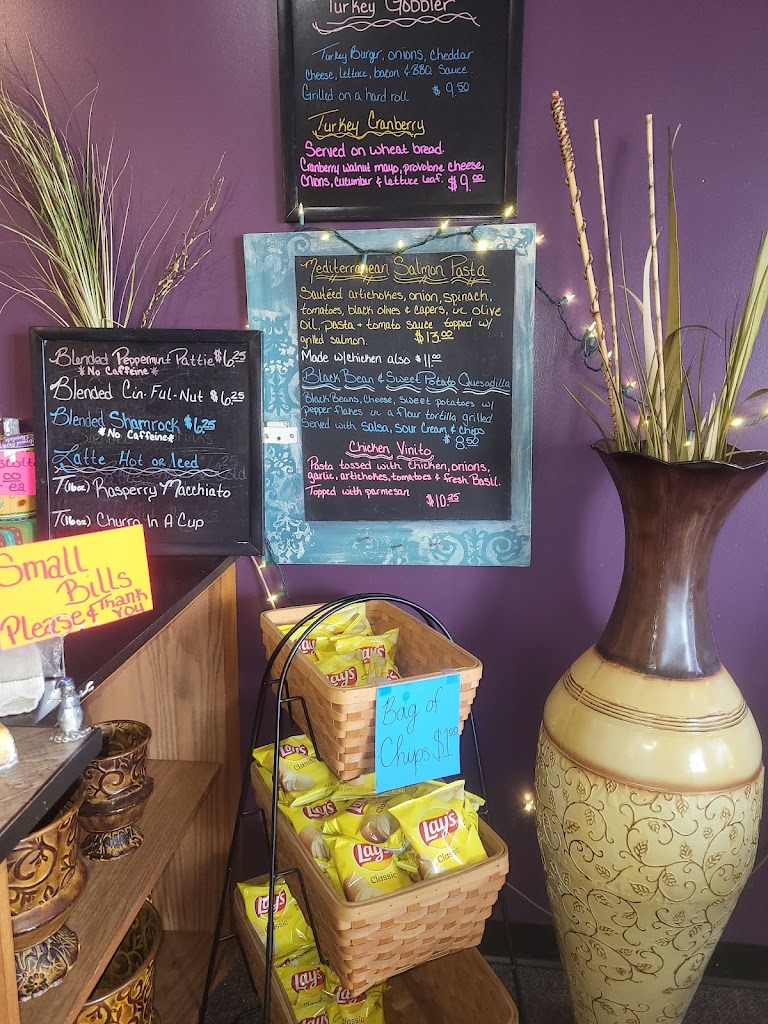 Turkey Gobbler
Turkey Burger, onions, cheddar
cheese, lettuce, bacon & BBQ Sauce.
Grilled on a hard roll $9.50
Turkey Cranberry
Served on wheat bread.
Cranberry walnut mayo, provolone cheese,
Onions, cucumber & lettuce leaf. $9.00
Mediterranean Salmon Pasta
Sautéed artichokes, onion, spinach,
tomatoes, black olives & capers, in olive
oil, pasta + tomato sauce topped w/
grilled salmon. $13.00
Made w/chicken also $11.00
Black Bean & Sweet Potato Quesadilla
Black Beans, Cheese, sweet potatoes w/
pepper flakes in a flour tortilla grilled.
Served with salsa, sour cream & chips
$8.50
Chicken Vinito
Pasta tossed with chicken, onions,
garlic, artichokes, tomatoes & fresh Basil.
Topped with parmesan $10.25
Blended Peppermint Pattie $6.25
*No Caffeine*
Blended Cin-Ful-Nut $6.25
Blended Shamrock $6.25
*No Caffeine*
Latte Hot or Iced
T(16oz) Rasperry Macchiato
T(16oz) Churro In A Cup
ea
Small
Bills
Please & Thank
you
Bag of
Chips $1.00
Lay's
Lay's
Lay's
Lay's
Lay's
Classic
Lay's
Classic
Lay's
Classic
Lay's
Lay's
Lay's